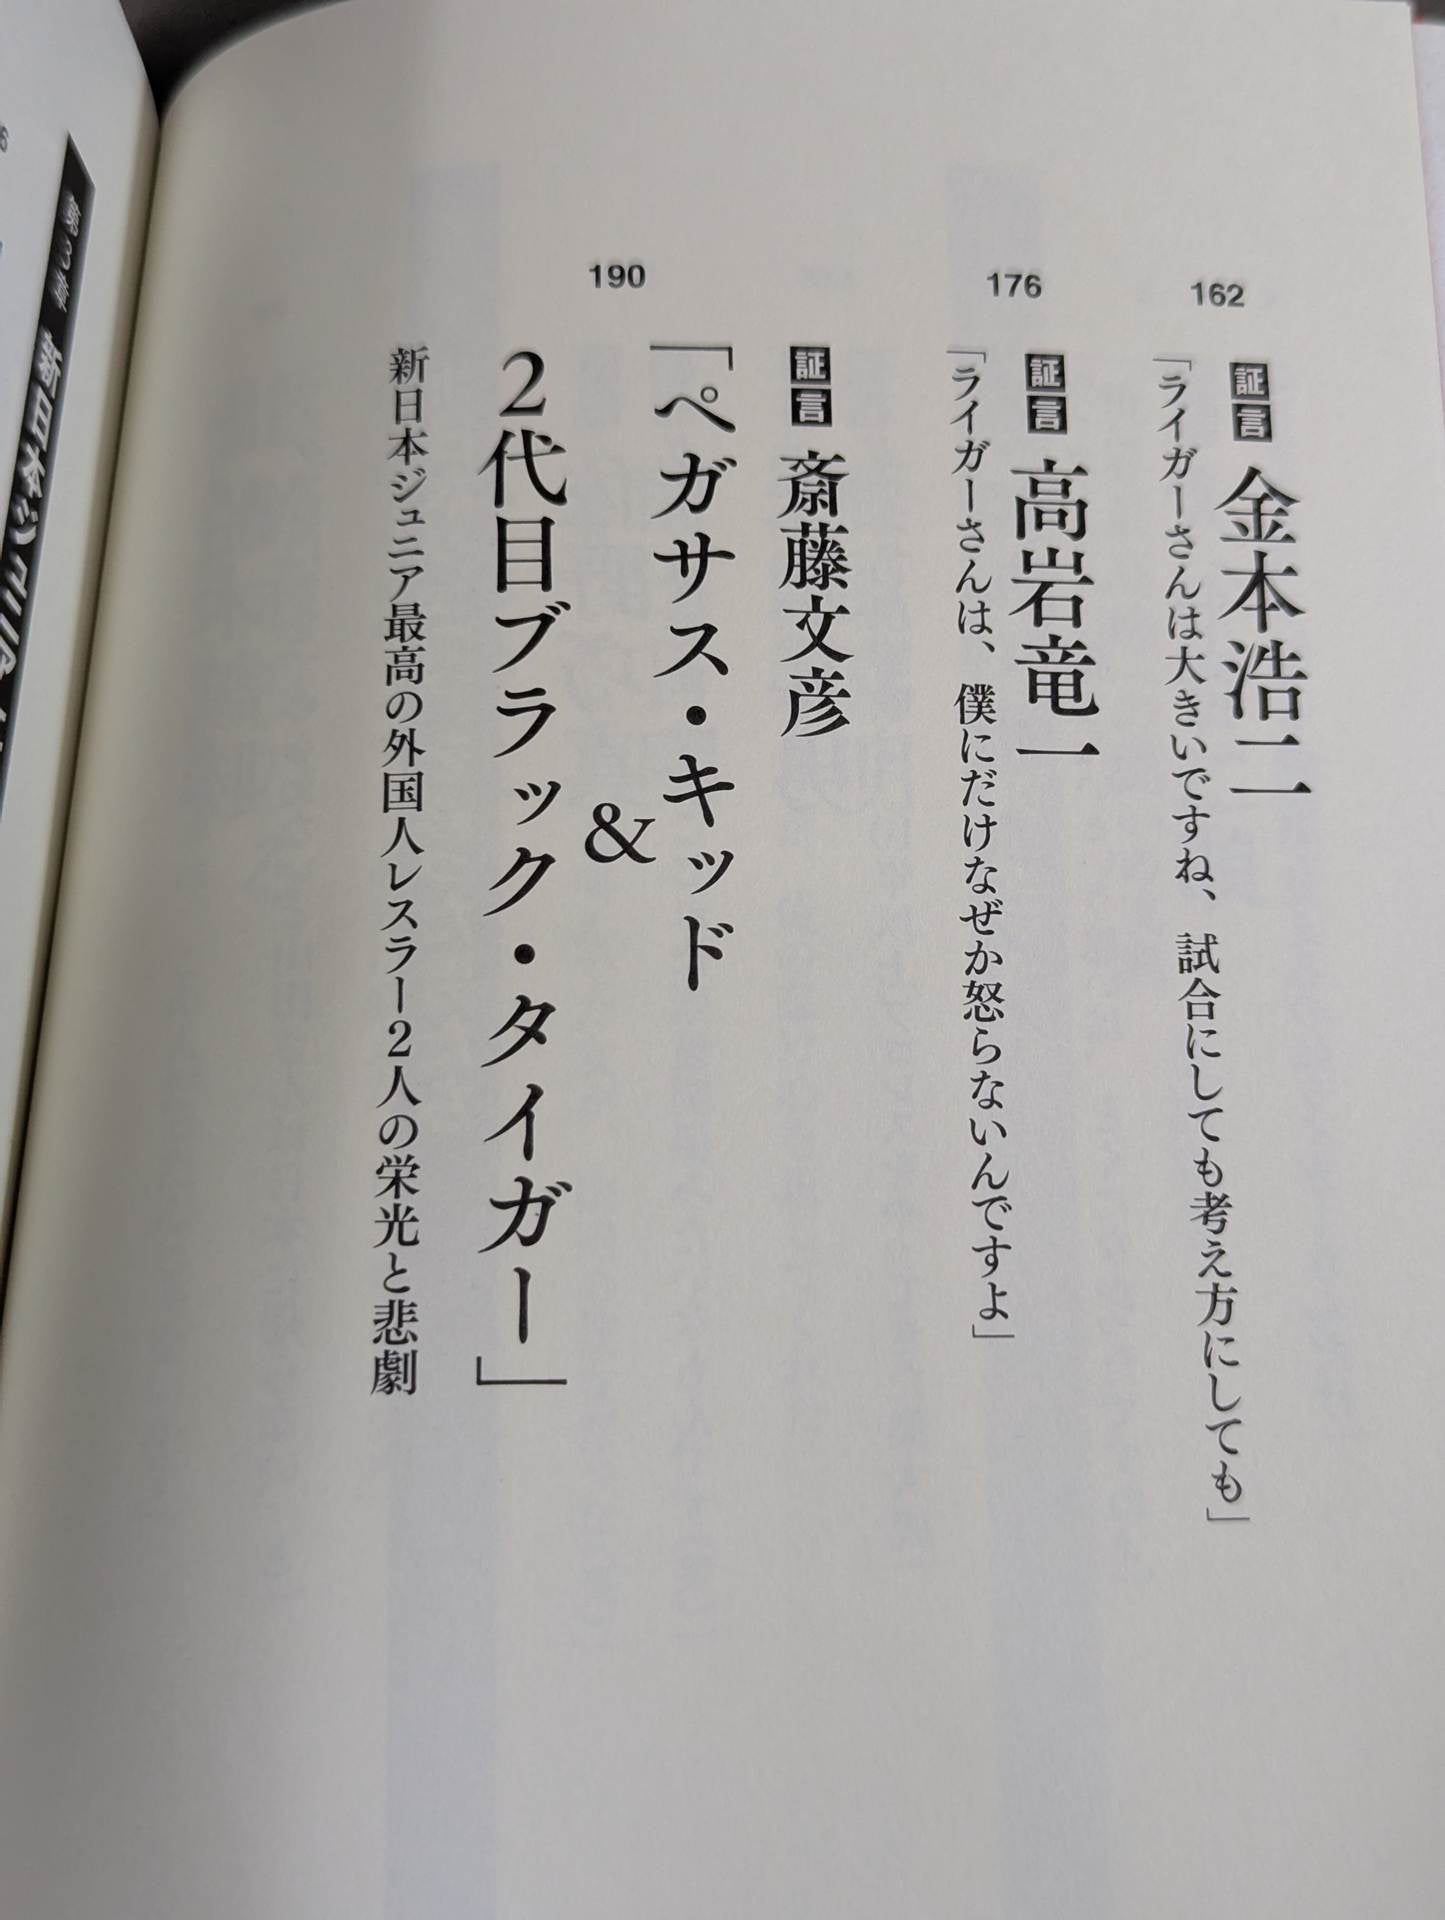 162
証言 金本浩二
「ライガーさんは大きいですね、試合にしても考え方にしても」
176
証言 高岩竜一
「ライガーさんは、僕にだけなぜか怒らないんですよ」
190
証言 斎藤文彦
「ペガサス・キッド
&
2代目ブラック・タイガー」
新日本ジュニア最高の外国人レスラー2人の栄光と悲劇
新日本ジュニア